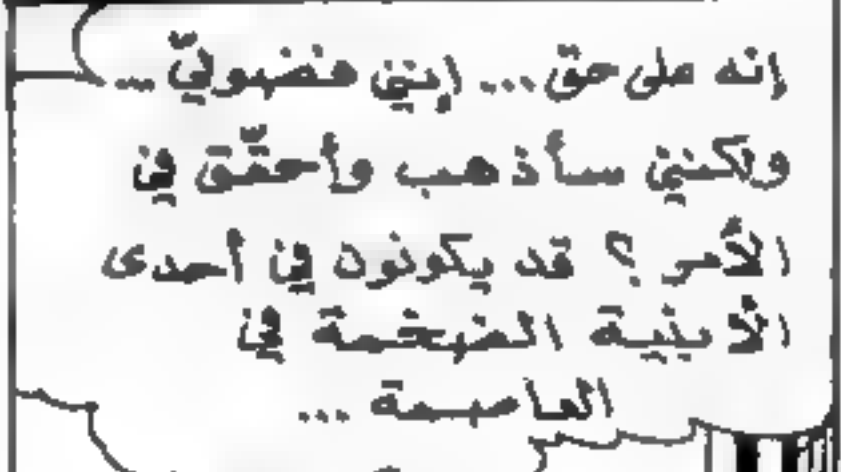 إنه على حق... إنني فضولي...
ولكنني سأذهب وأحقّق في
الأمر؟ قد يكونون في أحدى
الأبنية الضخمة في
العاصمة...